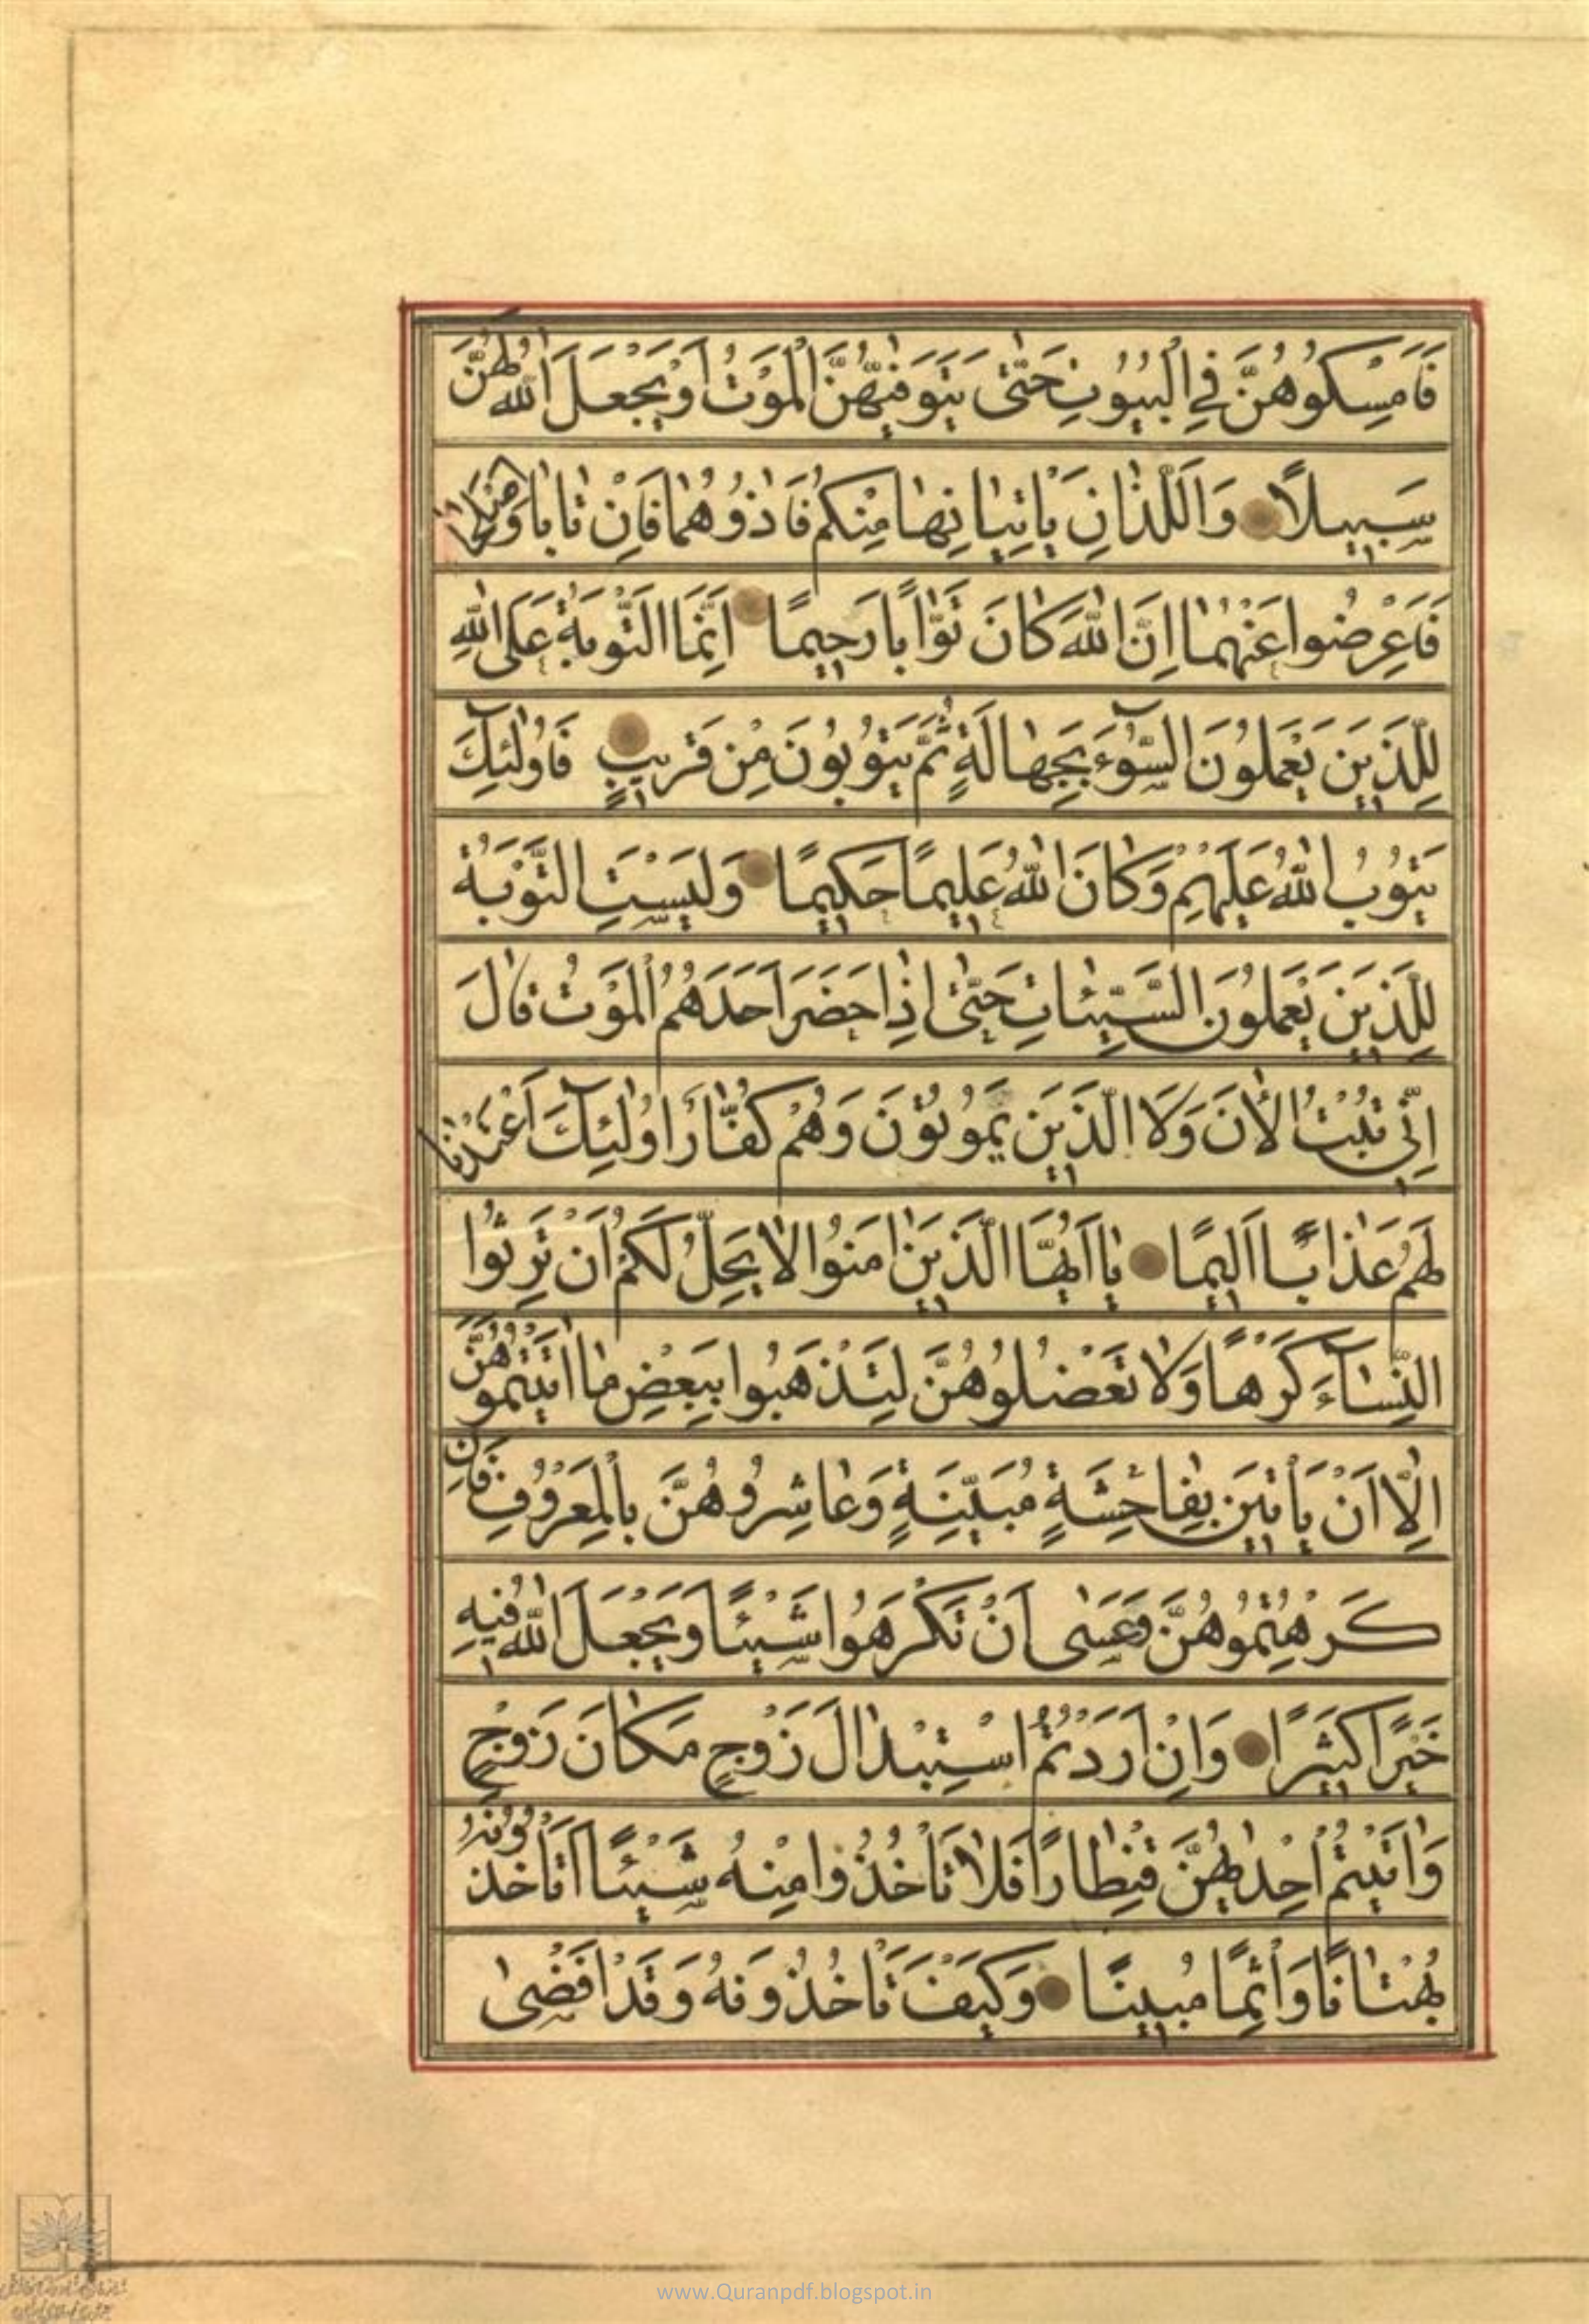 فَاَمْسِكُوهُنَّ فِي الْبُيُوتِ حَتّٰى يَتَوَفّٰيهُنَّ الْمَوْتُ اَوْ يَجْعَلَ اللّٰهُ لَهُنَّ
سَبِيلًا وَاللَّذَانِ يَاْتِيَانِهَا مِنْكُمْ فَاٰذُوهُمَا فَاِنْ تَابَا وَ اَصْلَحَا
فَاَعْرِضُوا عَنْهُمَا اِنَّ اللّٰهَ كَانَ تَوَّابًا رَحِيمًا اِنَّمَا التَّوْبَةُ عَلَى اللّٰهِ
لِلَّذِينَ يَعْمَلُونَ السُّوٓءَ بِجَهَالَةٍ ثُمَّ يَتُوبُونَ مِنْ قَرِيبٍ فَاُولٰٓئِكَ
يَتُوبُ اللّٰهُ عَلَيْهِمْ وَكَانَ اللّٰهُ عَلِيمًا حَكِيمًا وَلَيْسَتِ التَّوْبَةُ
لِلَّذِينَ يَعْمَلُونَ السَّيِّئَاتِ حَتّٰى اِذَا حَضَرَ اَحَدَهُمُ الْمَوْتُ قَالَ
اِنِّي تُبْتُ الْاٰنَ وَلَا الَّذِينَ يَمُوتُونَ وَهُمْ كُفَّارٌ اُولٰٓئِكَ اَعْتَدْنَا
لَهُمْ عَذَابًا اَلِيمًا يَا اَيُّهَا الَّذِينَ اٰمَنُوا لَا يَحِلُّ لَكُمْ اَنْ تَرِثُوا
النِّسَآءَ كَرْهًا وَلَا تَعْضُلُوهُنَّ لِتَذْهَبُوا بِبَعْضِ مَا اٰتَيْتُمُوهُنَّ
اِلَّا اَنْ يَاْتِينَ بِفَاحِشَةٍ مُبَيِّنَةٍ وَعَاشِرُوهُنَّ بِالْمَعْرُوفِ فَاِنْ
كَرِهْتُمُوهُنَّ فَعَسٰى اَنْ تَكْرَهُوا شَيْئًا وَيَجْعَلَ اللّٰهُ فِيهِ
خَيْرًا كَثِيرًا وَاِنْ اَرَدْتُمُ اسْتِبْدَالَ زَوْجٍ مَكَانَ زَوْجٍ
وَاٰتَيْتُمْ اِحْدٰيهُنَّ قِنْطَارًا فَلَا تَاْخُذُوا مِنْهُ شَيْئًا اَتَاْخُذُونَهُ
بُهْتَانًا وَاِثْمًا مُبِينًا وَكَيْفَ تَاْخُذُونَهُ وَقَدْ اَفْضٰى
www.Quranpdf.blogspot.in